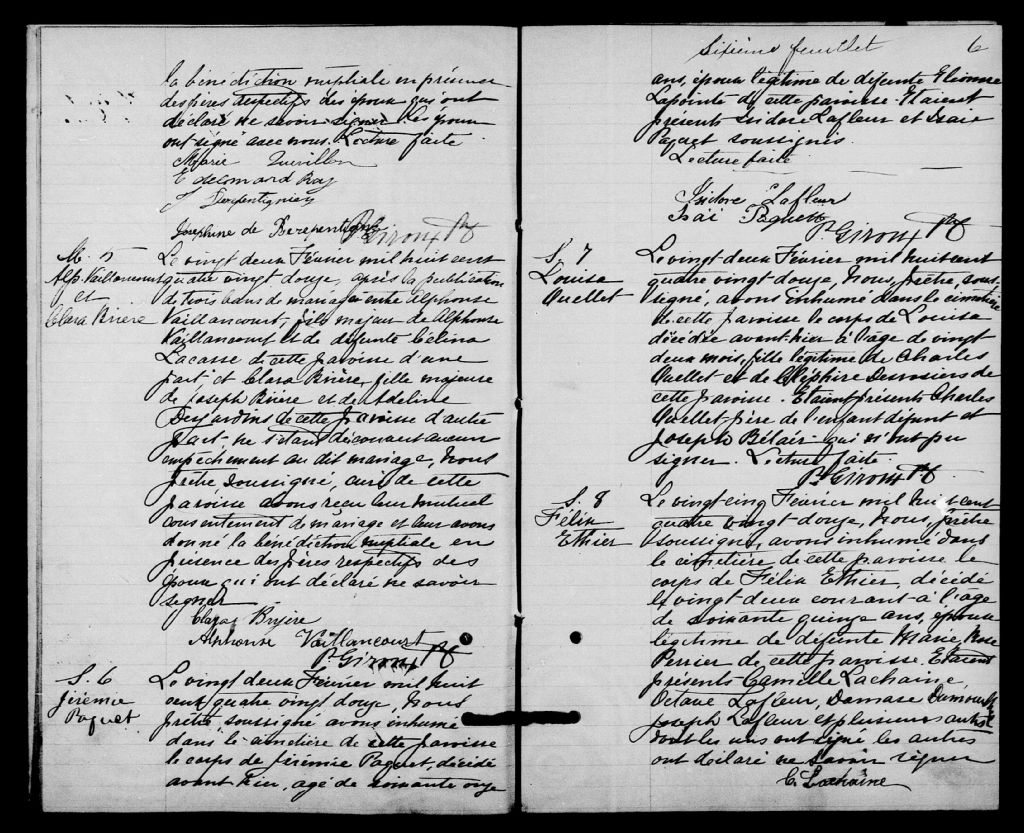 la bénédiction nuptiale en présence
des pères respectifs des époux qui ont
déclaré ne savoir signer. Les époux
ont signé avec nous. Lecture faite
Marie Quevillon
Josephine de Berepentigny
P. Giroux Ptr
M. 5
Alp. Vaillancourt
et
Clara Brière
Le vingt deux Février mil huit cent
quatre vingt douze, après la publication
de trois bans de mariage entre Alphonse
Vaillancourt, fils majeur de Alphonse
Vaillancourt et de défunte Célina
Lacasse de cette paroisse d'une
part, et Clara Brière, fille majeure
de Joseph Brière et de Adeline
Desjardins de cette paroisse d'autre
part - ne s'étant découvert aucun
empêchement au dit mariage, Nous
prêtre soussigné, curé de cette
paroisse avons reçu leur mutuel
consentement de mariage et leur avons
donné la bénédiction nuptiale en
présence des pères respectifs des
époux qui ont déclaré ne savoir
signer
Clara Bryère
Alphonse Vaillancourt
P. Giroux Ptr
S. 6
Jérémie
Paquet
Le vingt deux Février mil huit
cent quatre vingt douze, Nous
prêtre soussigné avons inhumé
dans le cimetière de cette paroisse
le corps de Jérémie Paquet, décédé
avant hier, agé de soixante onze
Sixième feuillet 6
ans, époux légitime de défunte Eléonore
Lapointe de cette paroisse. Etaient
présents Isidore Lafleur et Isaie
Paquet soussignés.
Lecture faite
Isidore Lafleur
Isaï Paquett
P. Giroux Ptr
S. 7
Louisa
Ouellet
Le vingt deux Février mil huit cent
quatre vingt douze, Nous, prêtre, sous-
signé, avons inhumé dans le cimetière
de cette paroisse le corps de Louisa
décédée avant-hier à l'âge de vingt
deux mois, fille légitime de Charles
Ouellet et de Cléphire Desrosiers de
cette paroisse. Etaient présents Charles
Ouellet père de l'enfant défunt et
Joseph Bélair qui n'ont pu
signer. Lecture faite.
P. Giroux Ptr
S. 8
Félix
Ethier
Le vingt cinq Février mil huit cent
quatre vingt douze, Nous, prêtre
soussigné, avons inhumé dans
le cimetière de cette paroisse le
corps de Félix Ethier, décédé
le vingt deux courant à l'âge
de soixante quinze ans, époux
légitime de défunte Marie Rose
Perrier de cette paroisse. Etaient
présents Camille Lachaine,
Octave Lafleur, Damase
Joseph Lafleur et plusieurs autres
dont les uns ont signé les autres
ont déclaré ne savoir signer
C. Lachaîne